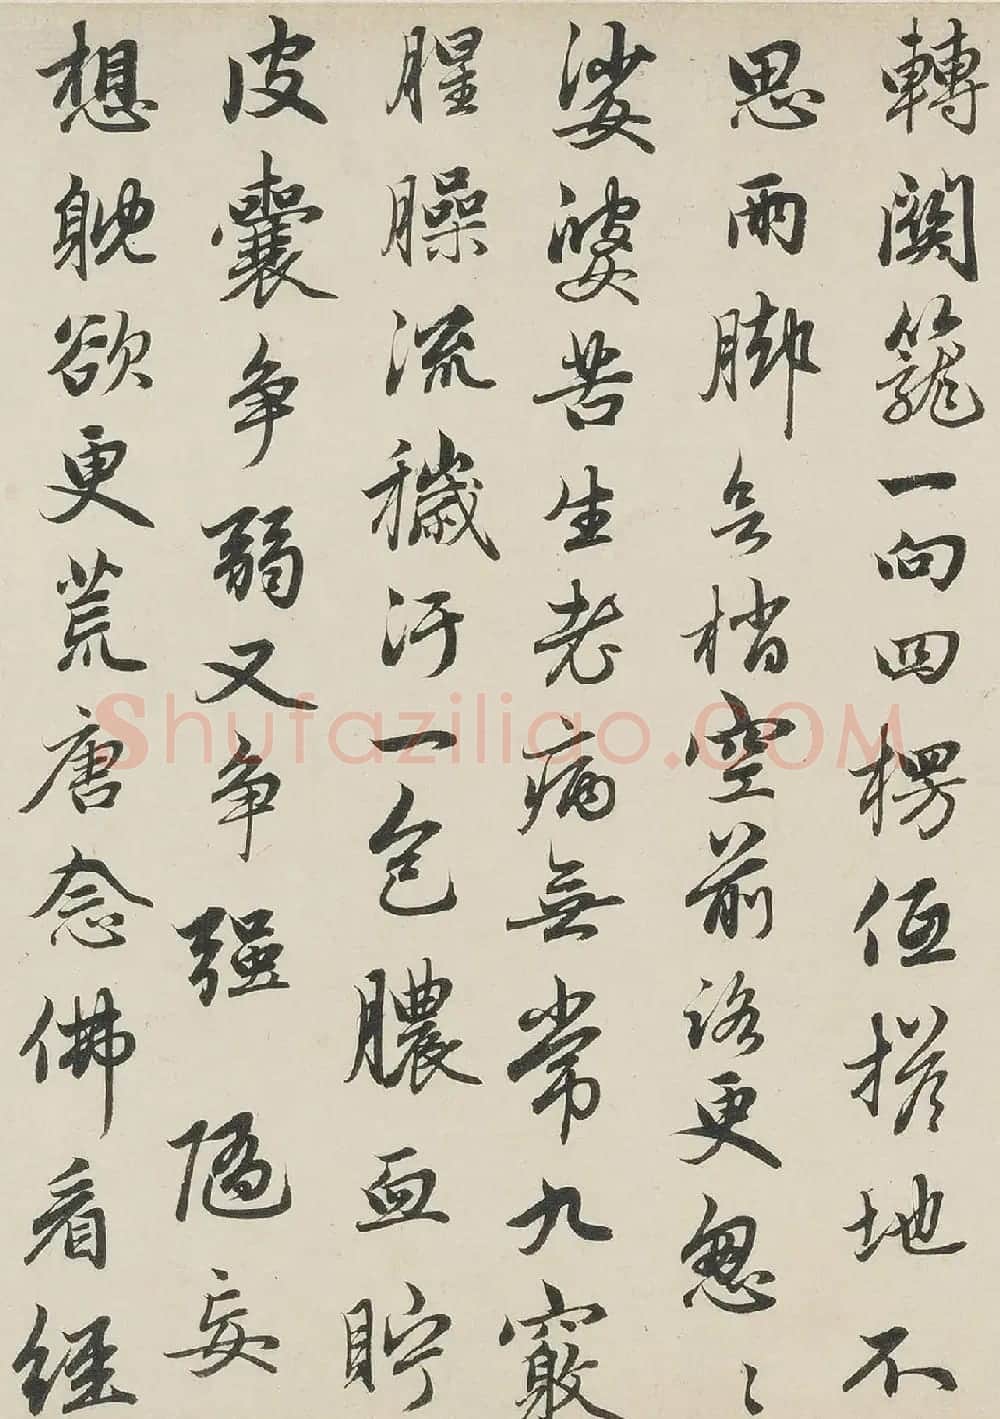 轉關籠一向四楞伍搭地不
思兩脚無梢空前路更忽〻
娑婆苦生老病無常九竅
腥臊流穢汙一包膿血貯
皮囊爭弱又爭強 隨妄
想躭欲更荒唐念佛看經
Shufaziliao.COM